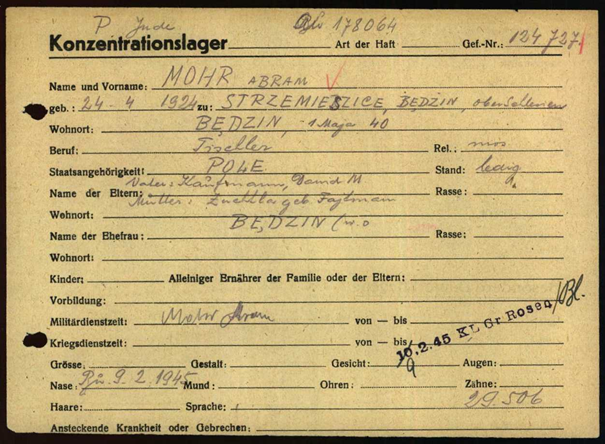 P Jude 178064
Konzentrationslager Art der Haft Gef.-Nr.: 124727
Name und Vorname: MOHR ABRAM
geb.: 24-4 1924 zu: STRZEMIESZICE, BĘDZIN,
Wohnort BĘDZIN, 1 Maja 40
Beruf: Tischler Rel.: mos
Staatsangehörigkeit: POLE Stand: ledig
Vater: Kaufmann, M
Name der Eltern: Rasse:
Mutter: geb. Fajtman
Wohnort: BĘDZIN
Name der Ehefrau: Rasse:
Wohnort:
Kinder: Alleiniger Ernährer der Familie oder der Eltern:
Vorbildung:
Militärdienstzeit: Mohr Abram von — bis
Kriegsdienstzeit: von — bis 10.2.45 KL Gr Rosen/Bl.
Grösse: Gestalt: Gesicht: 9 Augen:
Nase: Bu. 9. 2. 1945 Mund: Ohren: Zähne:
Haare: Sprache: 29.506
Ansteckende Krankheit oder Gebrechen: